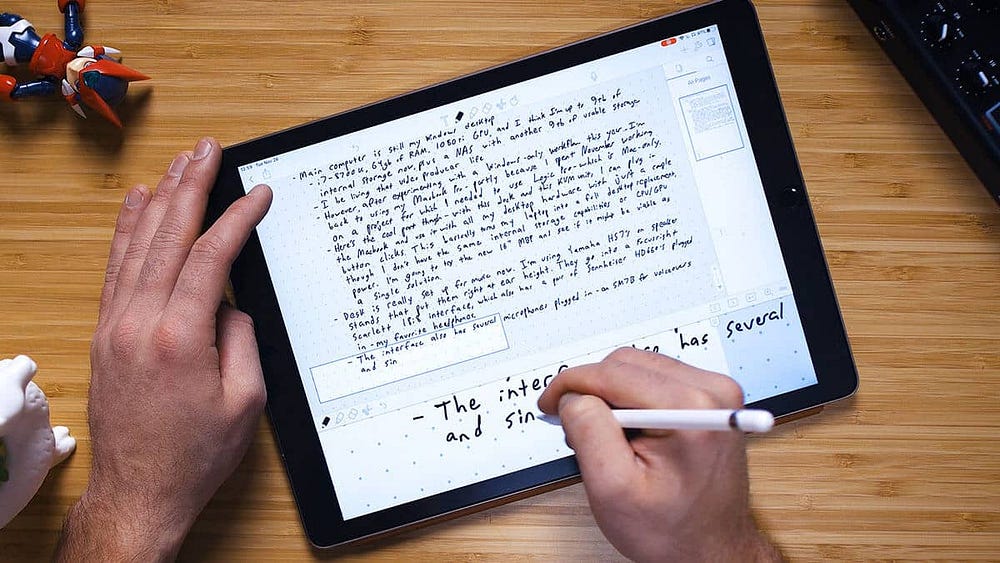 12:58 Tue Nov 26
All Pages
- Main computer is still my Windows desktop
i7-8700K, 64gb of RAM, 1080ti GPU, and I think I'm up to 9tb of
internal storage now, plus a NAS with another 9tb of usable storage.
I be living that video producer life.
- However, after experimenting with a Windows-only workflow this year, I'm
back to using my MacBook Pro, partly because I spent November working
on a project for which I needed to use Logic Pro - which is Mac-only.
- Here's the cool part though - with this dock and this KVM unit, I can plug in
the MacBook and use it with all my desktop hardware with just a couple
button clicks. This basically turns my laptop into a full desktop replacement,
though I don't have the same internal storage capabilities or CPU/GPU
power. I'm going to try the new 16" MBP and see if it might be viable as
a single solution.
- Desk is really set up for music now. I'm using Yamaha HS7s on speaker
stands that put them right at ear height. They go into a Focusrite
Scarlett 18i8 interface, which also has a pair of Sennheiser HD660s plugged
in - my favorite headphones.
- The interface also has several microphones plugged in - an SM7B for voiceovers
and sin
- The inter also has several
and sin